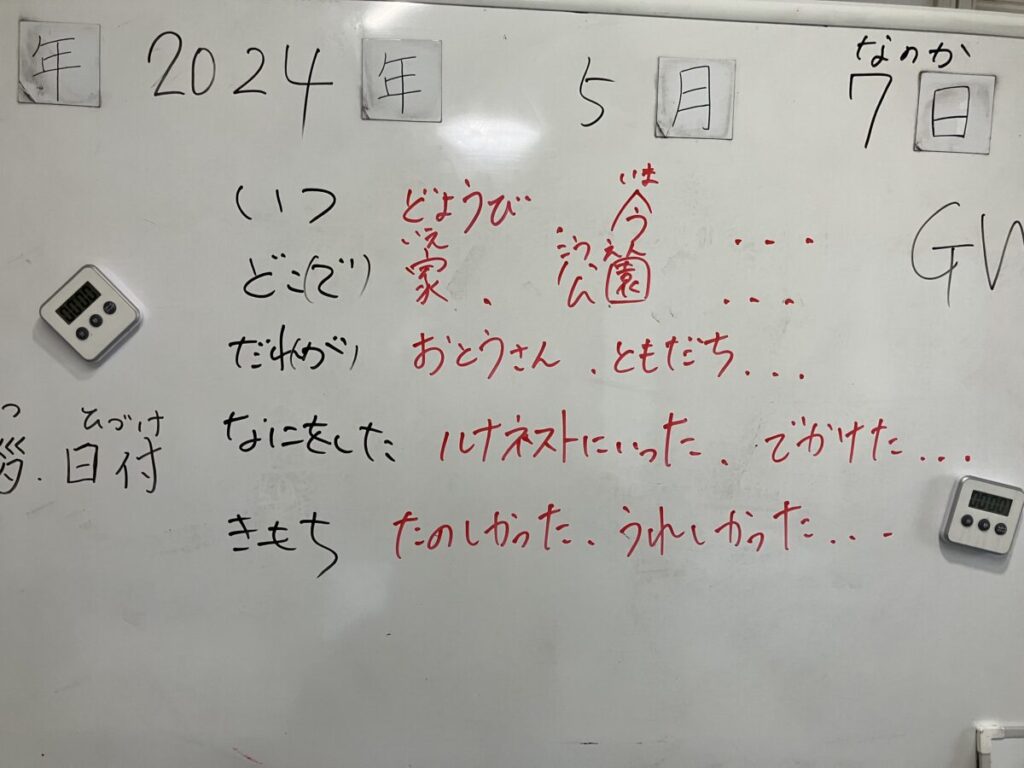 年 2024年 5月 7日
なのか
いつ どようび、今 ...
いま
どこ(で) 家、公園 ...
いえ こうえん
だれ(が) おとうさん、ともだち...
なにをした ルナネストにいった、でかけた...
きもち たのしかった、うれしかった...
ひづけ
日付
GW